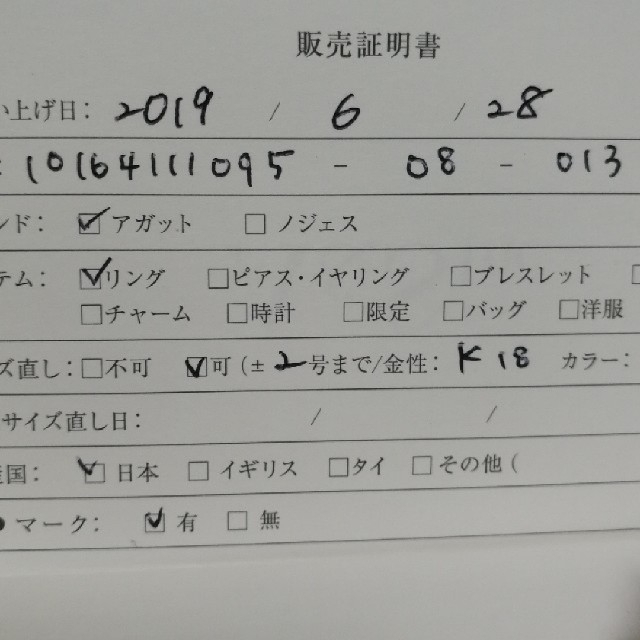 販売証明書
い上げ日： 2019 / 6 / 28
: 10164111095 - 08 - 013
ンド： ☑アガット □ノジェス
テム： ☑リング □ピアス・イヤリング □ブレスレット □
□チャーム □時計 □限定 □バッグ □洋服
ズ直し：□不可 ☑可（± 2 号まで/金性： K18 カラー：
サイズ直し日： / /
産国： ☑日本 □イギリス □タイ □その他（
マーク： ☑有 □無